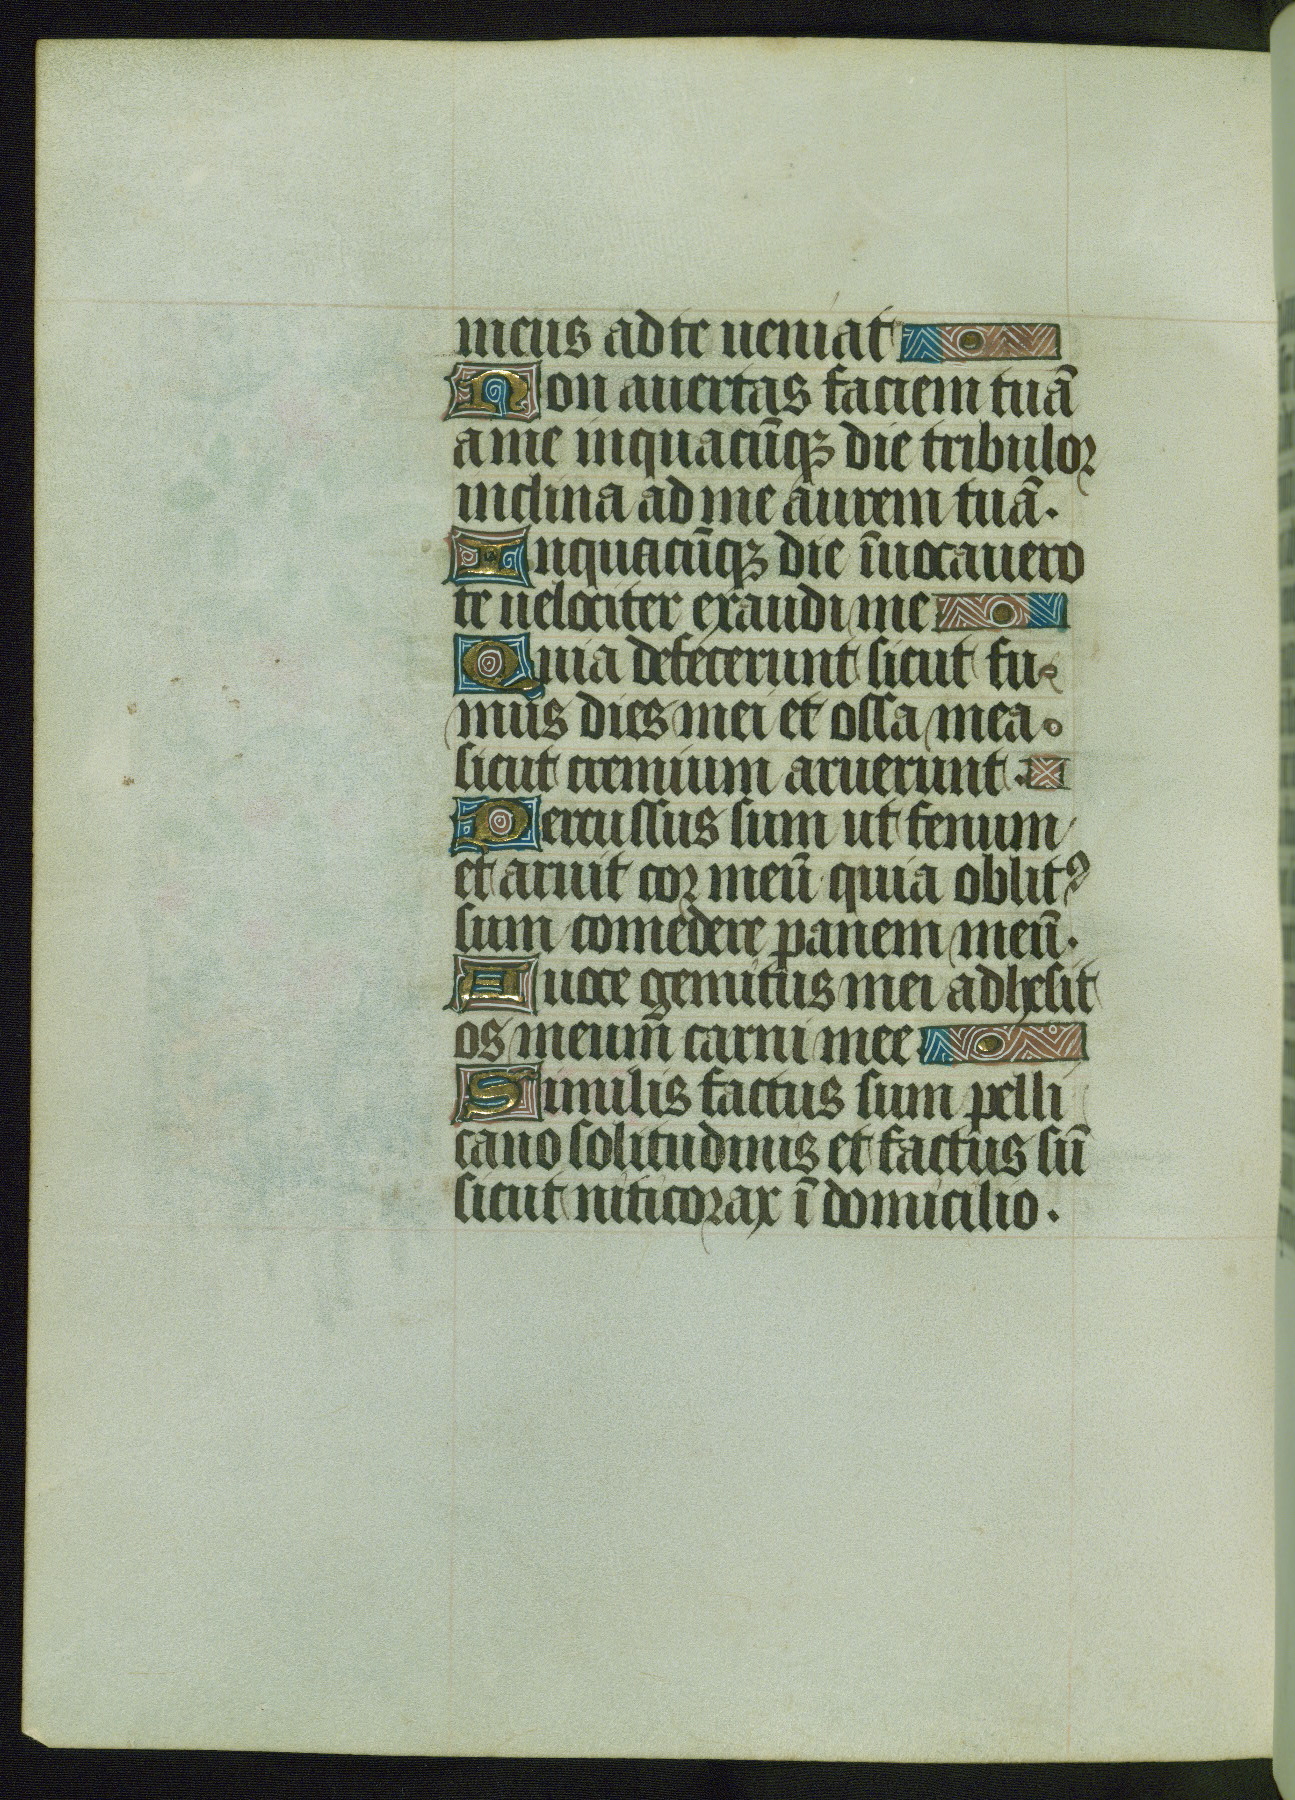 meus ad te ueniat
Non auertas faciem tuā
a me inquacūqꝫ die tribulor
inclina ad me aurem tuā.
Inquacūqꝫ die īuocauero
te uelociter exaudi me
Quia defecerunt sicut fu
mus dies mei et ossa mea
sicut cremium aruerunt.
Percussus sum ut fenum
et aruit cor meū quia oblitꝰ
sum comedere panem meū.
A uoce gemitus mei adhesit
os meum̄ carni mee
Similis factus sum pelli
cano solitudinis et factus sū
sicut niticorax ī domicilio.